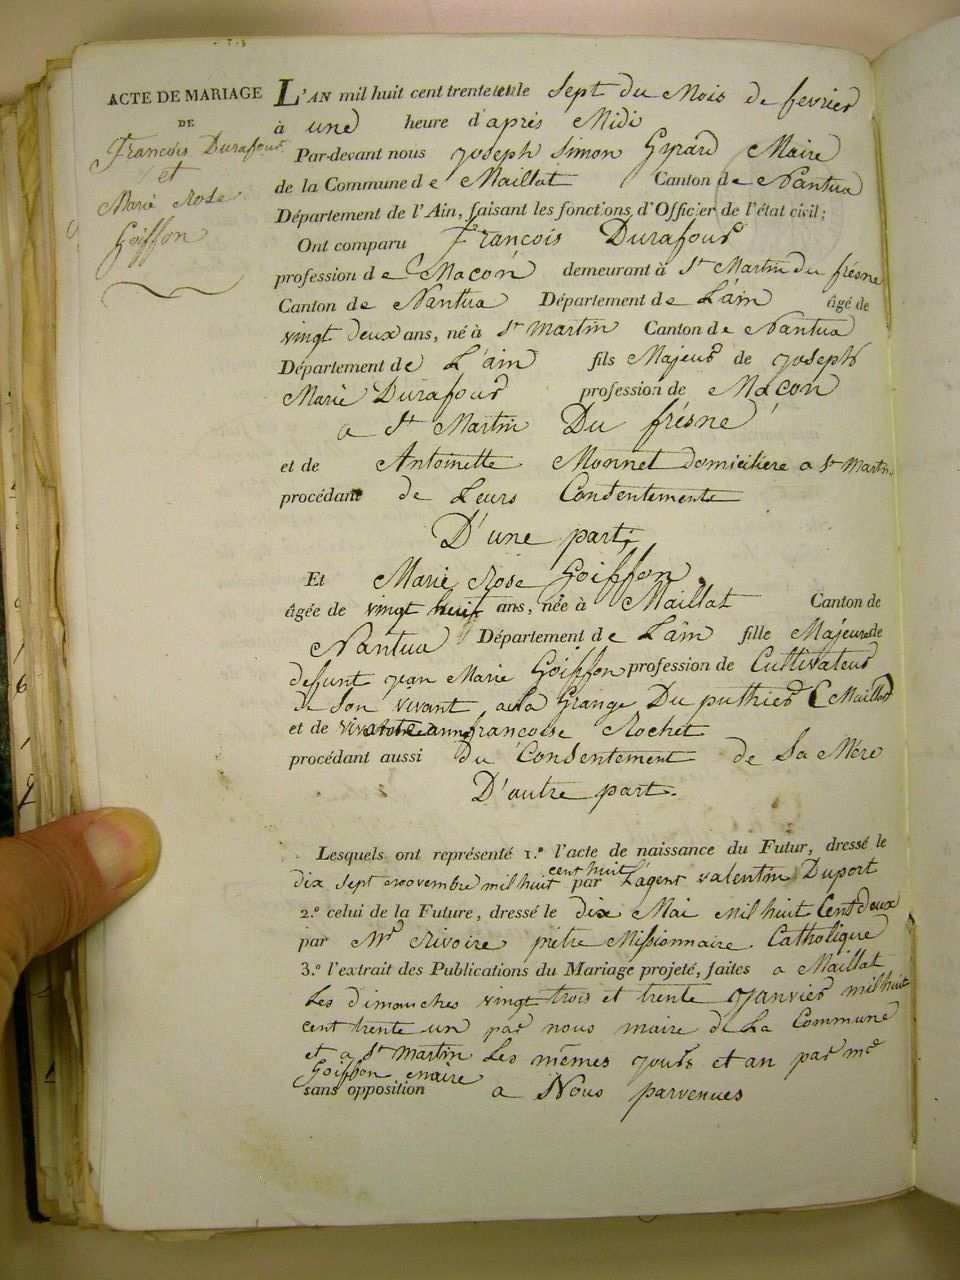 ACTE DE MARIAGE
DE
François Durafour
et
Marie Rose
Goiffon
L'AN mil huit cent trente le sept du Mois de fevrier
à une heure d'après Midi
Par-devant nous joseph simon Girard Maire
de la Commune de Maillat Canton de Nantua
Département de l'Ain, faisant les fonctions d'Officier de l'état civil;
Ont comparu François Durafour
profession de Macon demeurant à St Martin du frésne
Canton de Nantua Département de L'ain âgé de
vingt deux ans, né à St martin Canton de Nantua
Département de L'ain fils Majeur de joseph
Marie Durafour profession de Macon
a St Martin Du frésne
et de Antoinette Monnet domiciliere a St Martin
procédant de Leurs Consentements
D'une part;
Et Marie Rose Goiffon,
âgée de vingt huit ans, née à Maillat Canton de
Nantua Département de L'ain fille Majeure de
defunt jean Marie Goiffon profession de Cultivateur
de Son vivant a La Grange Du puthier C Maillat
et de françoise Rochet
procédant aussi Du Consentement de Sa Mére
D'autre part.
Lesquels ont représenté 1.º l'acte de naissance du Futur, dressé le
dix sept novembre mil huit cent huit par L'agent valentin Duport
2.º celui de la Future, dressé le dix Mai Mil huit Cent deux
par Mr Rivoire prétre Missionnaire Catholique
3.º l'extrait des Publications du Mariage projeté, faites a Maillat
Les dimanches vingt trois et trente janvier mil huit
cent trente un par nous maire de La Commune
et a St martin Les mêmes jours et an par mr
Goiffon maire
sans opposition a Nous parvenues